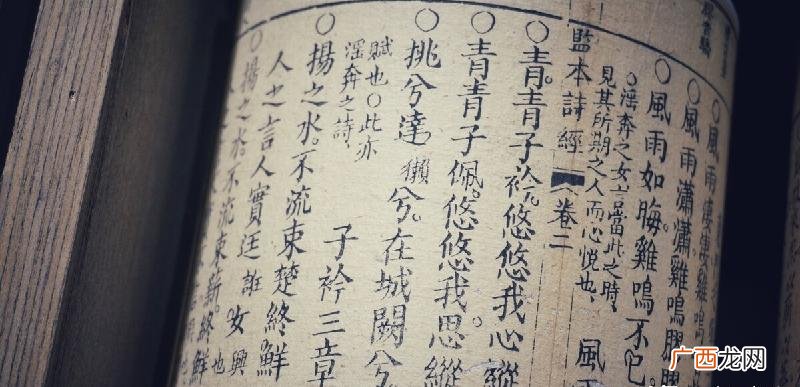 ○風雨淒淒雞鳴
○風雨瀟瀟雞鳴膠膠
○風雨如晦雞鳴不已
○淫奔之女言當此之時、
見其所期之人而心悅也、
風
監本詩經 卷二
○青青子衿。悠悠我心。縱
○青青子佩。悠悠我思。縱
○挑兮達獺兮。在城闕兮
賦也○此亦
淫奔之詩、
子衿三章
○揚之水。不流束楚終鮮
人之言人實迋誑女興也
○揚之水。不流束薪。終鮮
广西龙网